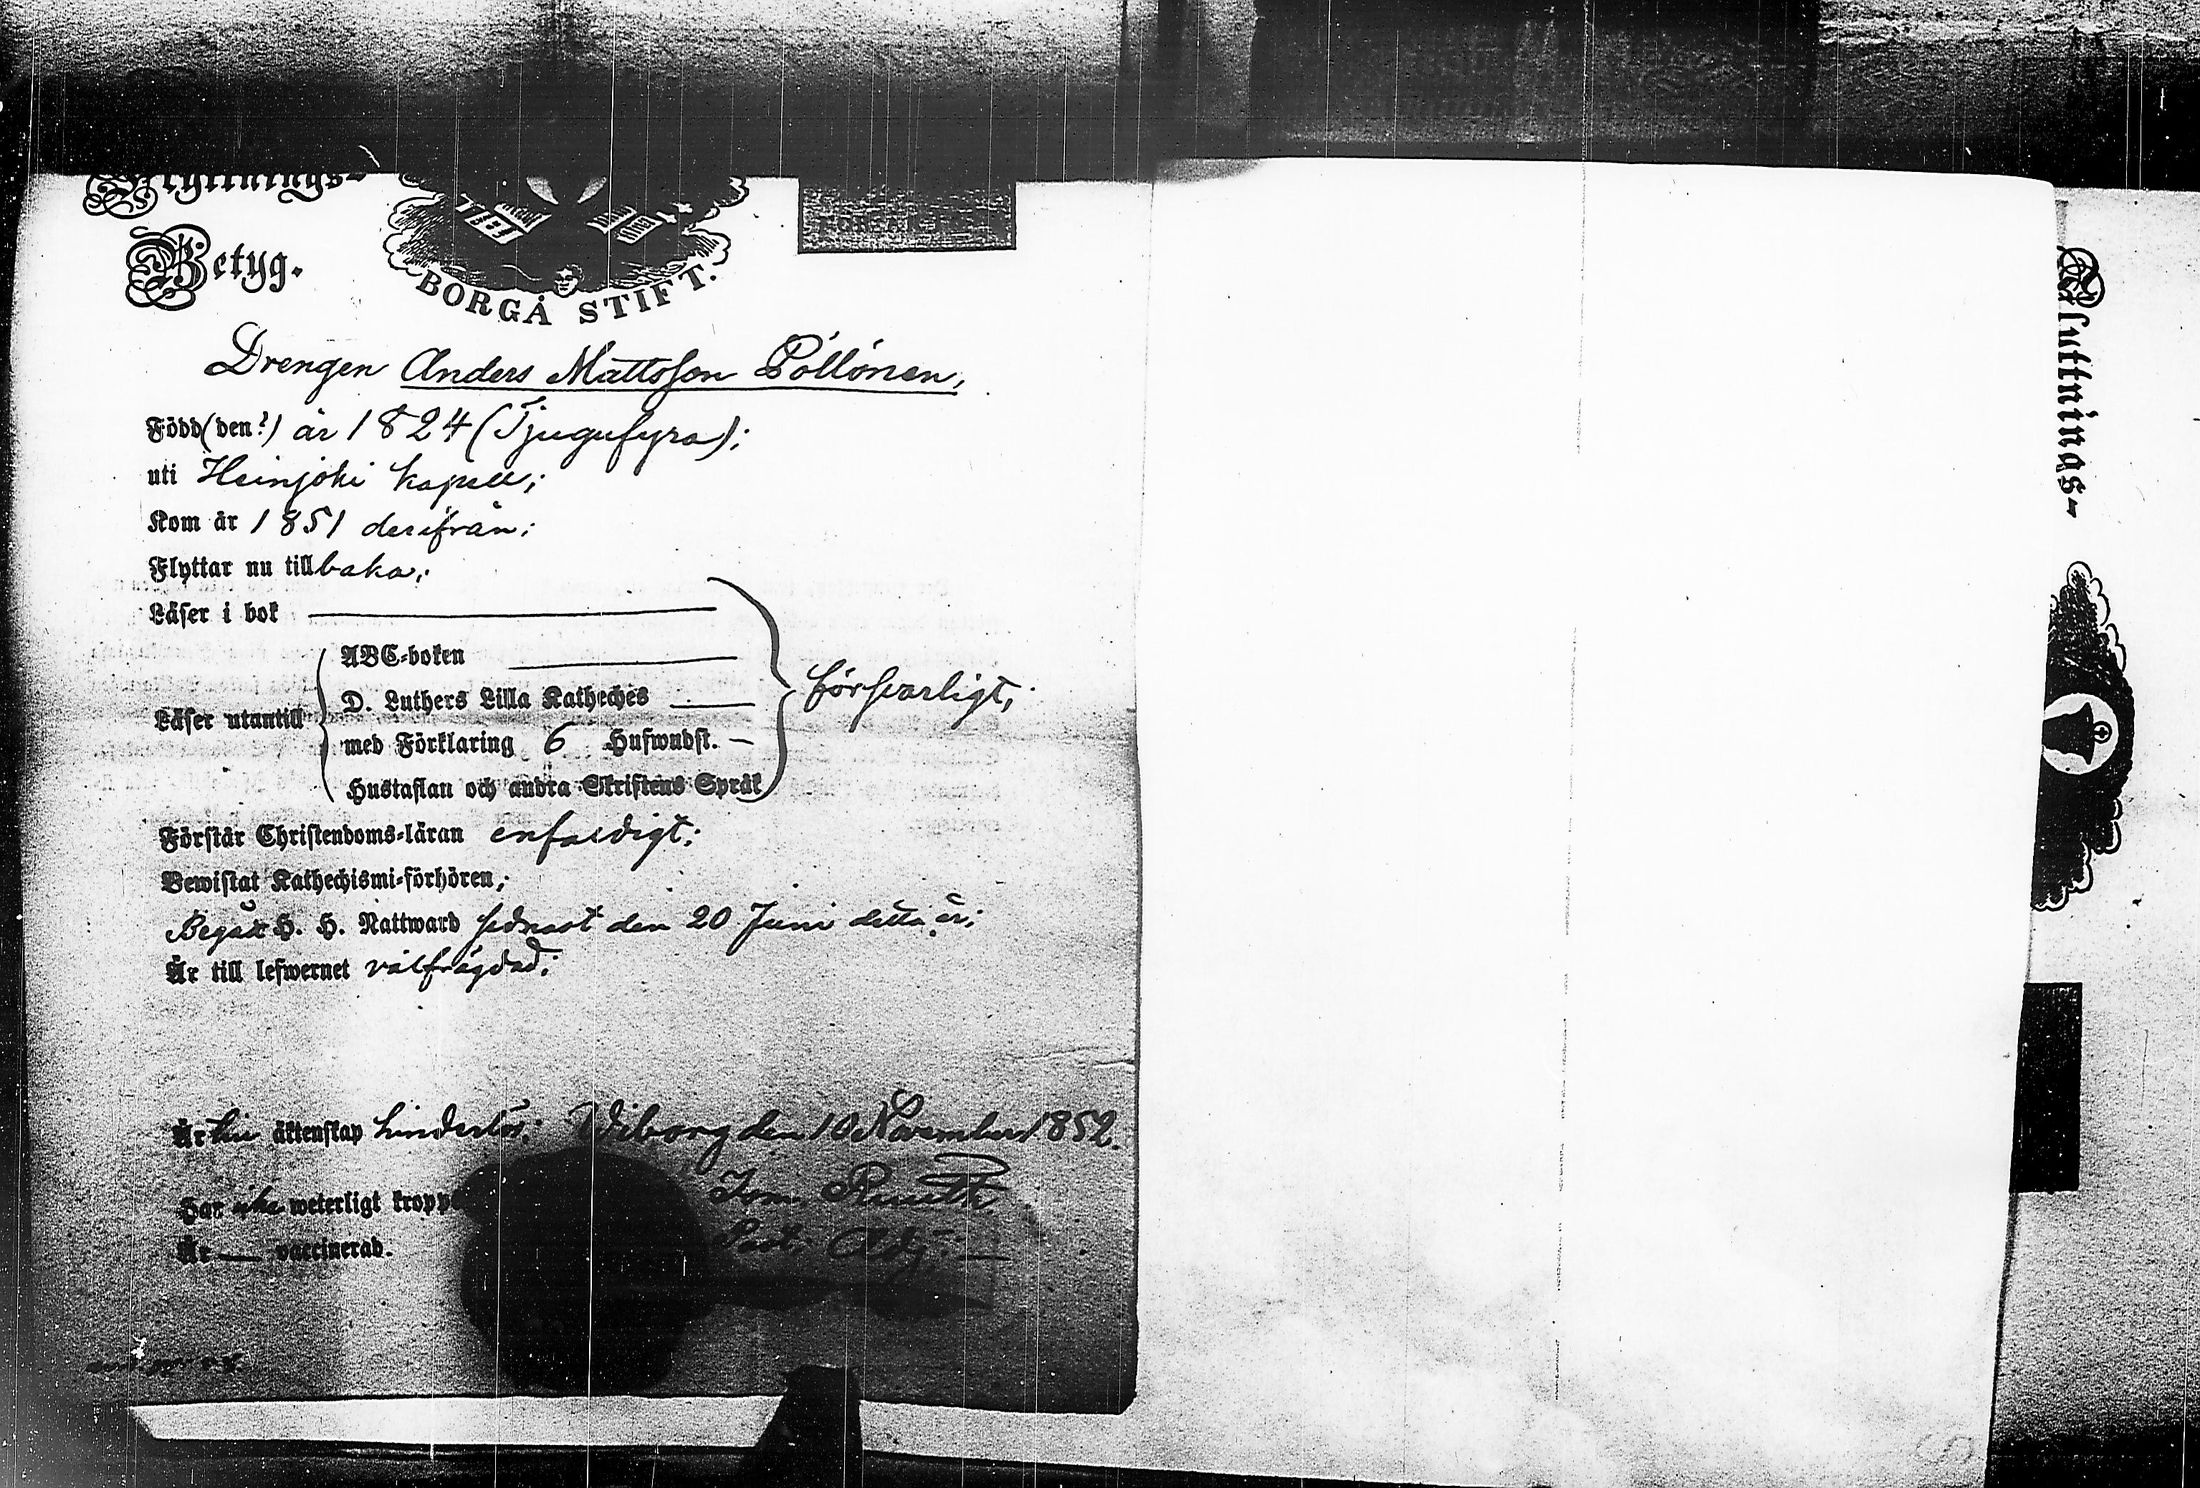 Flyttnings-
Betyg.
BORGÅ STIFT.
Drengen Anders Mattsson Pöllönen,
Född (den?) år 1824 (Tjugufyra);
uti Heinjoki kapell;
Kom år 1851 derifrån;
Flyttar nu tillbaka;
Läser i bok
ABC-boken
D. Luthers Lilla Katheches
försvarligt;
Läser utantill
med Förklaring 6 Hufwudst.
Hustaflan och andra Skriftens Språk
Förstår Christendoms-läran enfaldigt;
Bewistat Kathechismi-förhören;
Begått H. H. Nattward sednast den 20 Juni detta år;
Är till lefwernet välfrägdad;
Är äktenskap hinderlös; Wiborg den 10 November 1852.
Har weterligt kropps
Ruuth
Past. Adj.
Är — vaccinerad.
Flyttnings-